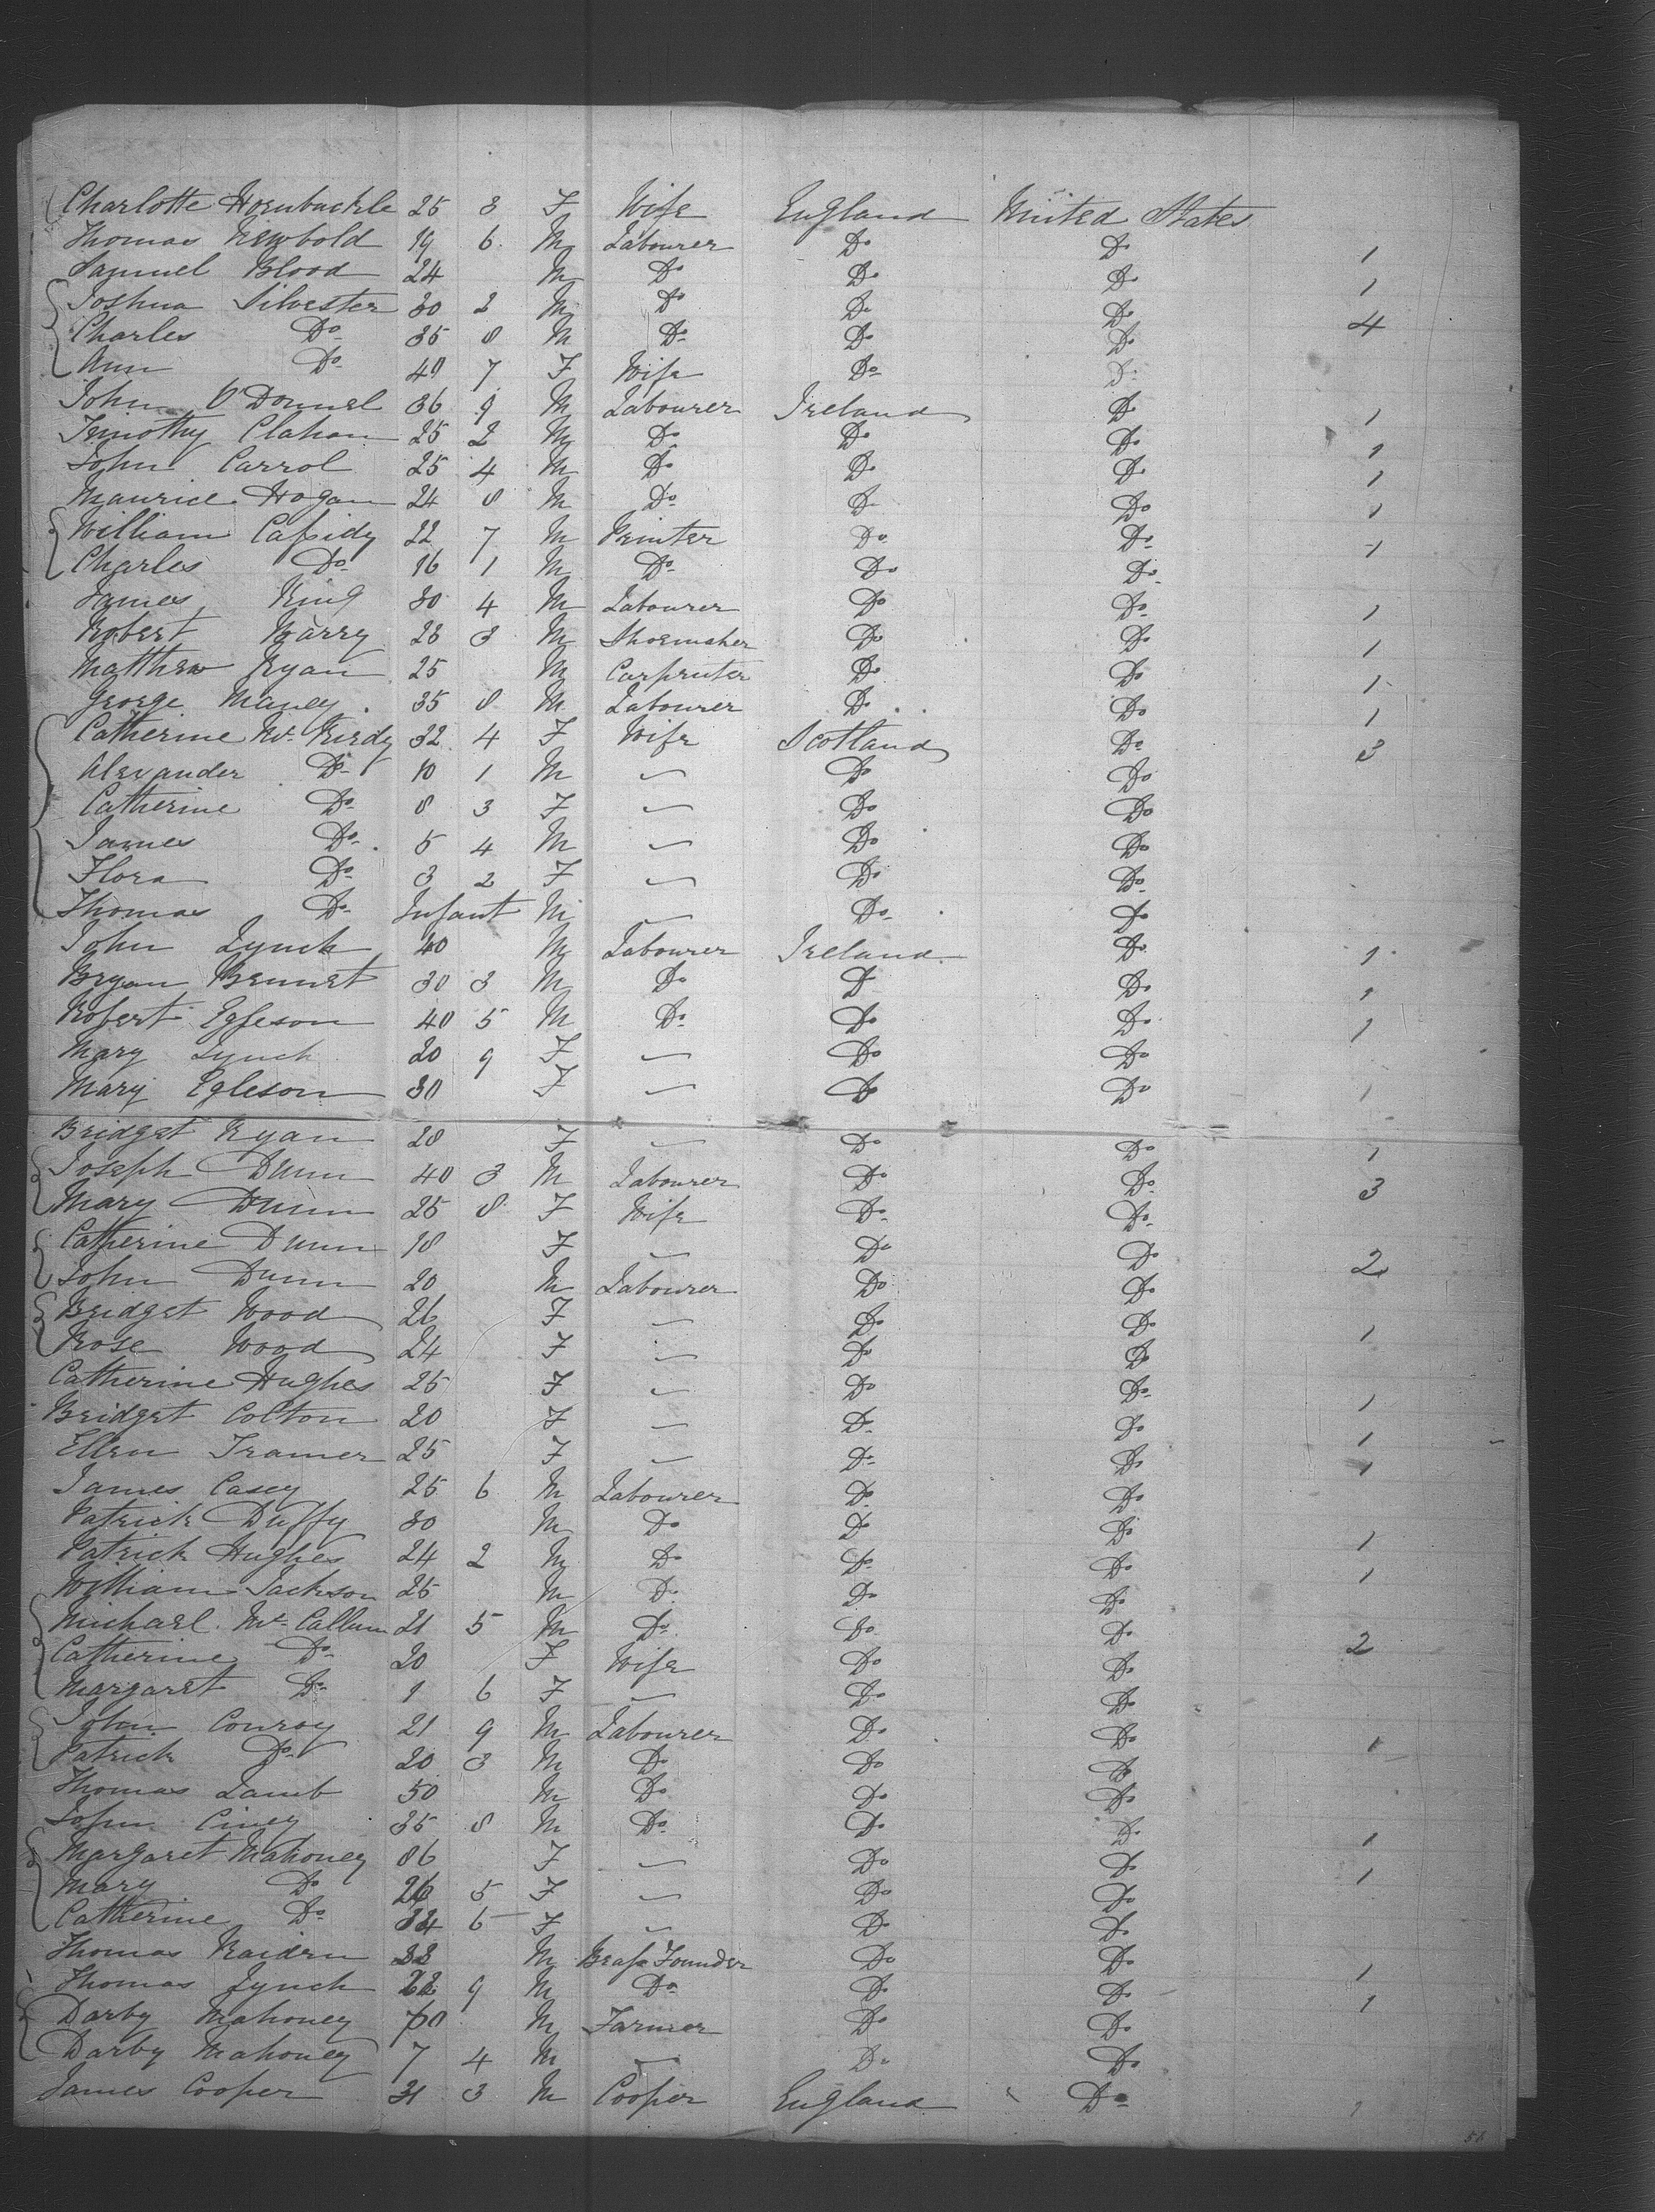 Charlotte Hornbuckle 25 3 F Wife England United States
Thomas Newbold 19 6 M Labourer Do Do 1
Samuel Blood 24 M Do Do Do 1
Joshua Silvester 30 2 M Do Do Do 4
Charles Do 35 8 M Do Do Do
Ann Do 40 7 F Wife Do Do
John O'Donnel 36 9 M Labourer Ireland Do 1
Timothy Clahan 25 2 M Do Do Do 1
John Carrol 25 4 M Do Do Do 1
Maurice Hogan 24 8 M Do Do Do 1
William Cassidy 22 7 M Printer Do Do 1
Charles Do 16 1 M Do Do Do
James King 30 4 M Labourer Do Do 1
Robert Barry 28 3 M Shoemaker Do Do 1
Matthew Ryan 25 M Carpenter Do Do 1
George Maney 35 8 M Labourer Do Do 1
Catherine Mc Kirdy 32 4 F Wife Scotland Do 3
Alexander Do 10 1 M — Do Do
Catherine Do 8 3 F — Do Do
James Do 5 4 M — Do Do
Flora Do 3 2 F — Do Do
Thomas Do Infant M — Do Do
John Lynch 40 M Labourer Ireland Do 1
Bryan Bennet 30 3 M Do Do Do 1
Robert Egleson 40 5 M Do Do Do 1
Mary Lynch 20 9 F — Do Do
Mary Egleson 30 F — Do Do 1
Bridget Ryan 28 F — Do Do 1
Joseph Dunn 40 3 M Labourer Do Do 3
Mary Dunn 25 8 F Wife Do Do
Catherine Dunn 18 F — Do Do 2
John Dunn 20 M Labourer Do Do
Bridget Wood 26 F — Do Do 1
Rose Wood 24 F — Do Do
Catherine Hughes 25 F — Do Do 1
Bridget Colton 20 F — Do Do 1
Ellen Tramer 25 F — Do Do 1
James Casey 25 6 M Labourer Do Do
Patrick Duffy 30 M Do Do Do 1
Patrick Hughes 24 2 M Do Do Do 1
William Jackson 25 M Do Do Do
Michael Mc Callum 21 5 M Do Do Do 2
Catherine Do 20 F Wife Do Do
Margaret Do 1 6 F — Do Do
John Conroy 21 9 M Labourer Do Do 1
Patrick Do 20 3 M Do Do Do
Thomas Lamb 50 M Do Do Do
John Ciney 35 8 M Do Do Do 1
Margaret Mahoney 36 F — Do Do 1
Mary Do 5 F — Do Do
Catherine Do 6 F — Do Do
Thomas 22 M Brass Founder Do Do 1
Thomas Lynch 9 M Do Do Do 1
Darby Mahoney M Farmer Do Do
Darby Mahoney 7 4 M — Do Do
James Cooper 31 3 M Cooper England Do 1